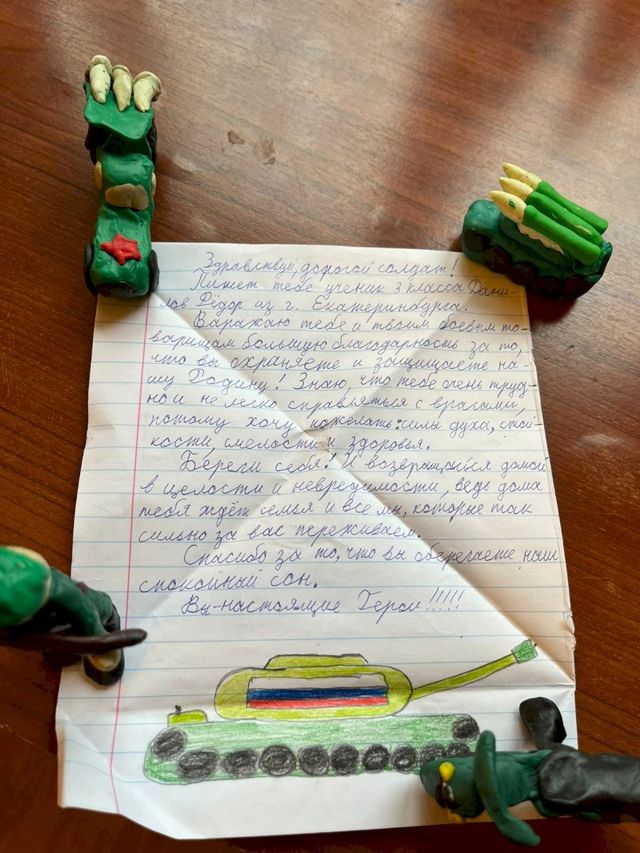 Здравствуй, дорогой солдат!
Пишет тебе ученик 3 класса Дани-
лов Фёдор из г. Екатеринбурга.
Варажаю тебе и твоим боевым то-
варищам большую благодарность за то,
что вы охраняете и защищаете на-
шу Родину! Знаю, что тебе очень труд-
но и не легко справляться с врагами,
потому хочу пожелать: силы духа, стой-
кости, смелости и здоровья.
Береги себя! И возвращайся домой
в целости и невредимости, ведь дома
тебя ждёт семья и все мы, которые так
сильно за вас переживаем.
Спасибо за то, что вы оберегаете наш
спокойный сон.
Вы-настоящие Герои!!!!!